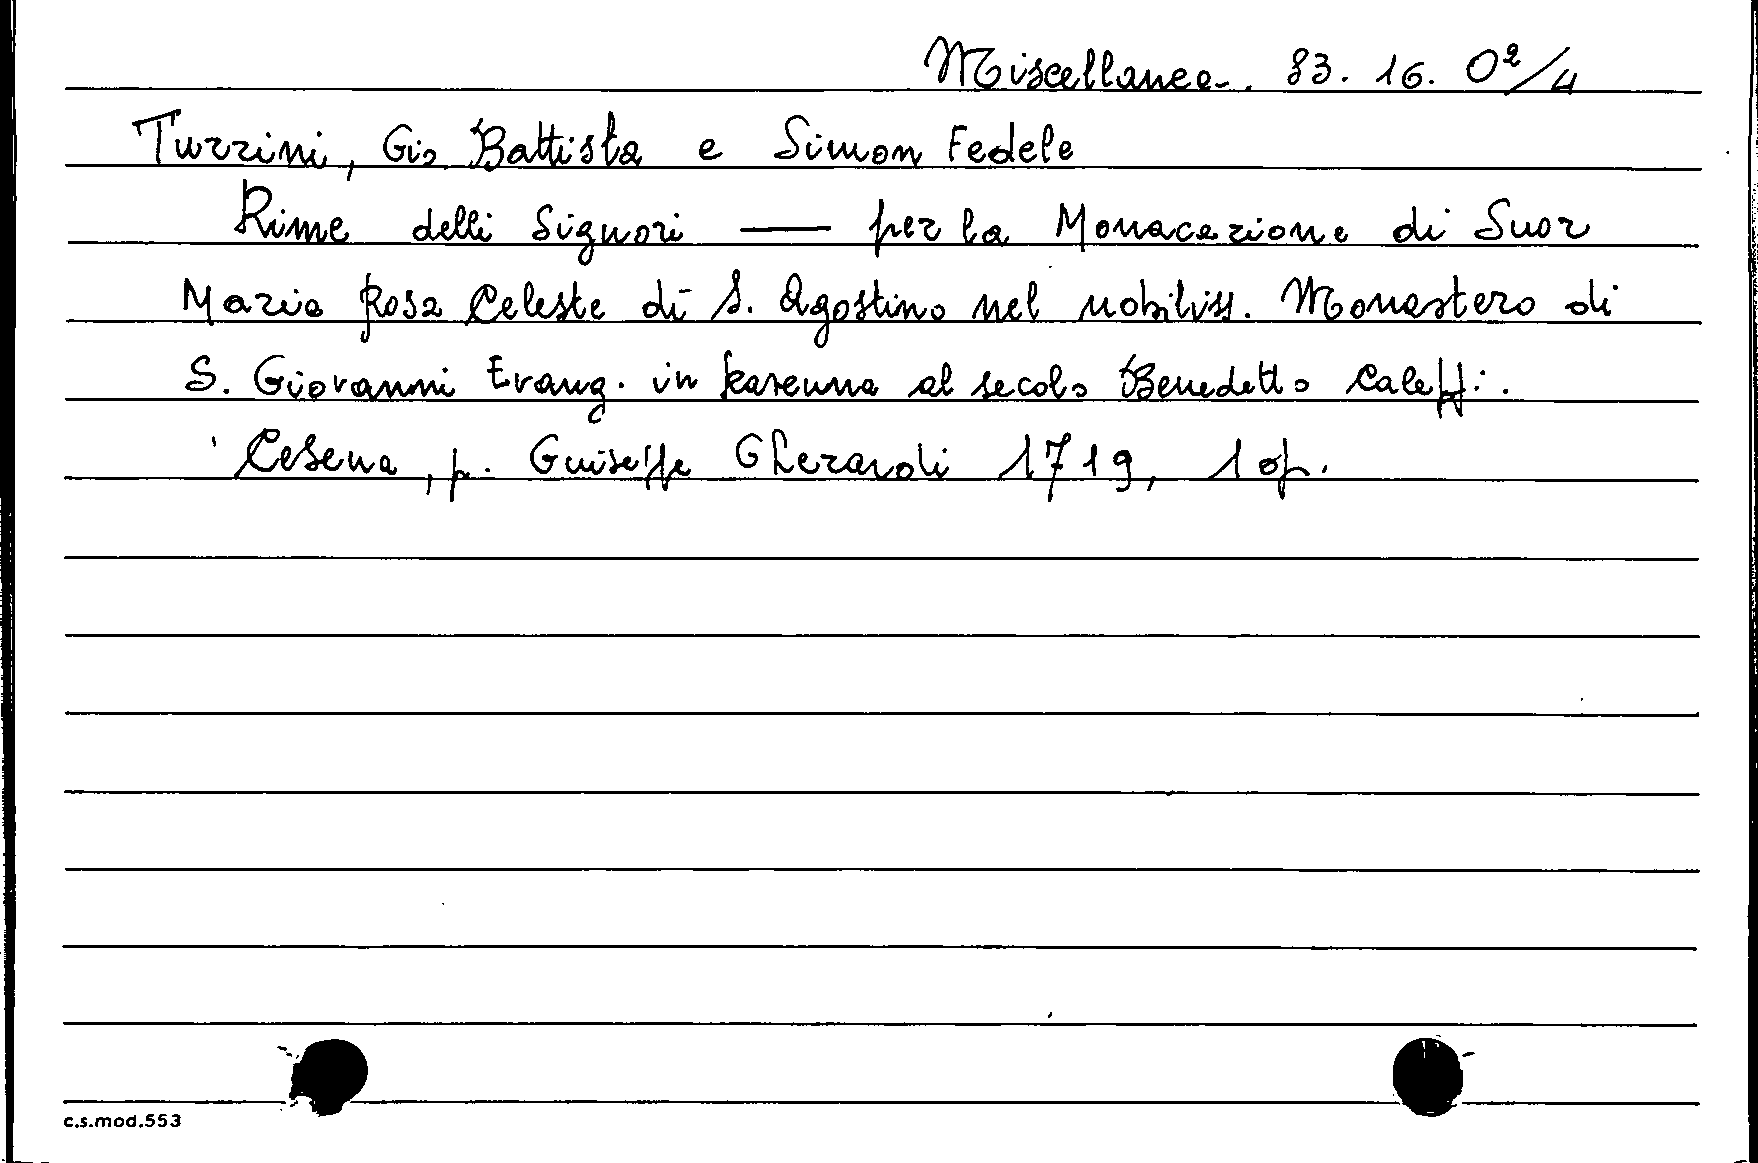 Miscellanea. 83. 16. O²/4
Turrini, Gio Battista e Simon Fedele
Rime delli Signori — per la Monacazione di Suor
Maria Rosa Celeste di S. Agostino nel nobiliss. Monastero di
S. Giovanni Evang. in Ravenna al secolo Benedetto Caleffi.
Cesena, p. Guiseppe Gherardi 1719, 1 op.
c.s.mod.553